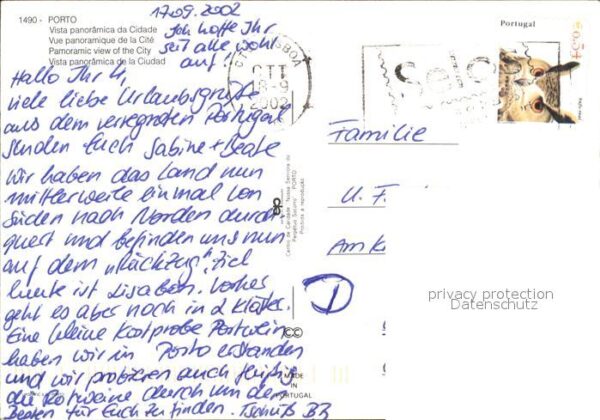 1490 - PORTO
Vista panorâmica da Cidade
Vue panoramique de la Cité
Pamoramic view of the City
Vista panorámica de la Ciudad
17.09.2002
Ich hoffe Ihr
seit alle wohl
auf!
Hallo Ihr 4,
viele liebe Urlaubsgrüße
aus dem verregneten Portugal
senden Euch Sabine + Beate
wir haben das Land nun
mittlerweile einmal von
Süden nach Norden durch
quert und befinden uns nun
auf dem "Rückzug", Ziel
heute ist Lissabon. Vorher
geht es aber noch in 2 Klöster.
Eine kleine Kostprobe Portwein
haben wir in Porto erstanden
und wir probieren auch fleißig
die Rotweine durch um den
Besten für Euch zu finden. Tschüß BB
CTT
2002
Portugal
Familie
U. F.
Am K
D
privacy protection
Datenschutz
MADE
IN
PORTUGAL